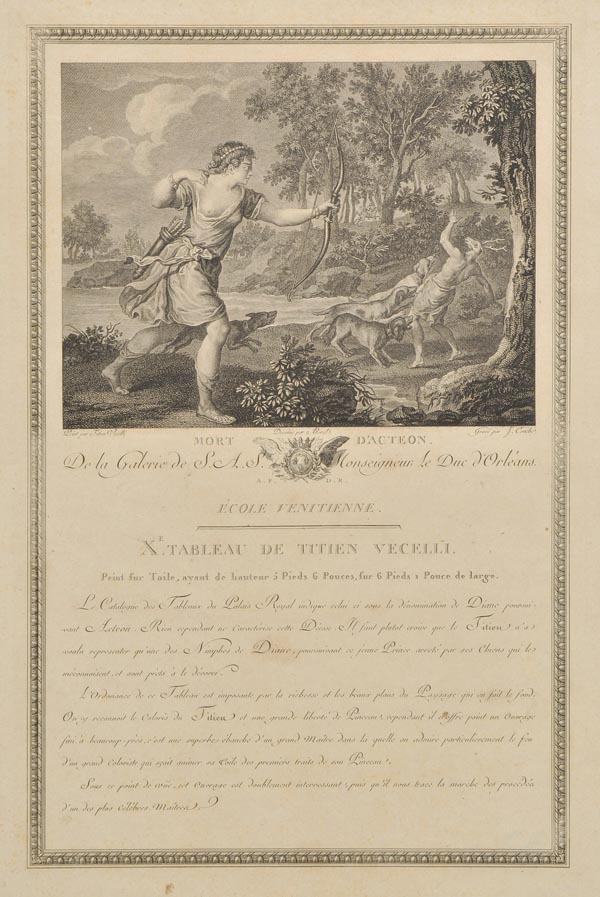 Peint par Titien Vecelli.
Dessiné par
Gravé par J. Couché
MORT D'ACTEON.
De la Galerie de S. A. S. Monseigneur le Duc d'Orléans.
A. P. D. R.
ÉCOLE VENITIENNE.
X.E TABLEAU DE TITIEN VECELLI.
Peint sur Toile, ayant de hauteur 5 Pieds 6 Pouces, sur 6 Pieds 1 Pouce de large.
Le Catalogue des Tableaux du Palais Royal indique celui ci sous la dénomination de Diane poursui-
vant Acteon. Rien cependant ne caracterise cette Déesse. Il faut plutot croire que le Titien n'a
voulu representer qu'une des Nimphes de Diane, poursuivant ce jeune Prince arreté par ses Chiens qui le
méconnoissent, et sont prêts à le dévorer.
L'Ordonance de ce Tableau est imposante par la richesse et les beaux plans du Paysage qui en fait le fond.
On y reconnoit le Coloris du Titien et une grande liberté de Pinceau, cependant il n'offre point un Ouvrage
fini à beaucoup près, c'est une superbe ébauche d'un grand Maitre dans la quelle on admire particulierement le feu
d'un grand Coloriste qui sçait animer sa Toile des premiers traits de son Pinceau.
Sous ce point de vüe, cet Ouvrage est doublement interressant, puis qu'il nous trace la marche des procedés
d'un des plus Célébres Maitres.